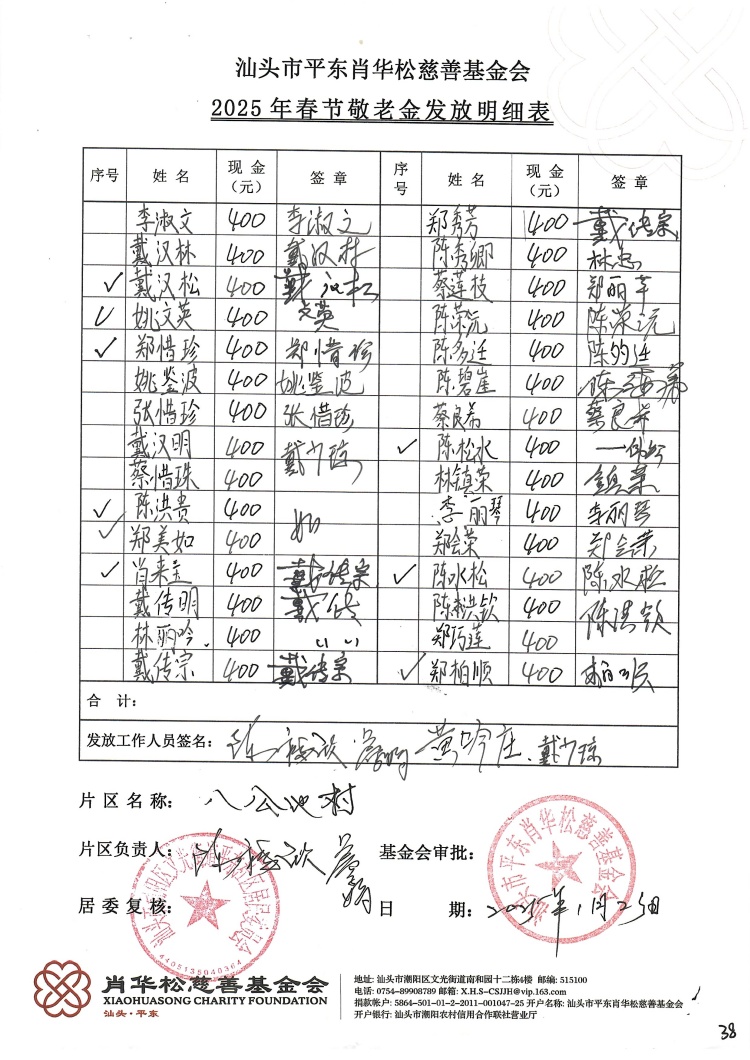 汕头市平东肖华松慈善基金会
2025年春节敬老金发放明细表
序号 姓名 现金（元） 签章 序号 姓名 现金（元） 签章
李淑文 400 李淑文 郑秀芳 400 戴传宗
戴汉林 400 戴汉林 陈秀卿 400 林忠
✓ 戴汉松 400 戴汉松 蔡莲枝 400 郑丽辛
✓ 姚文英 400 文英 陈荣沅 400 陈荣沅
✓ 郑惜珍 400 郑惜珍 陈多廷 400 陈的廷
姚鉴波 400 姚鉴波 陈碧崔 400 陈
张惜珍 400 张惜珍 蔡良希 400 蔡良希
戴汉明 400 戴少琼 ✓ 陈松水 400
蔡惜珠 400 林镇荣 400 镇荣
✓ 陈洪贵 400 李丽琴 400 李丽琴
✓ 郑美如 400 如 郑会荣 400 郑会荣
✓ 肖来玉 400 戴传宗 ✓ 陈水松 400 陈水松
戴传明 400 戴传 陈洪钦 400 陈洪钦
林丽吟 400 郑巧莲 400
戴传宗 400 戴传宗 ✓ 郑柏顺 400
合 计：
发放工作人员签名： 黄吟庄、戴少琼
片区名称： 八公地村
片区负责人： 基金会审批：
居委复核： 日 期：2025年1月25日
汕头市平东肖华松慈善基金会
4405135040364
肖华松慈善基金会
XIAOHUASONG CHARITY FOUNDATION
汕头·平东
地址: 汕头市潮阳区文光街道南和园十二栋4楼 邮编: 515100
电话: 0754-89908789 邮箱: X.H.S-CSJJH@vip.163.com
捐款帐户: 5864-501-01-2-2011-001047-25 开户名称: 汕头市平东肖华松慈善基金会
开户银行: 汕头市潮阳农村信用合作联社营业厅
38